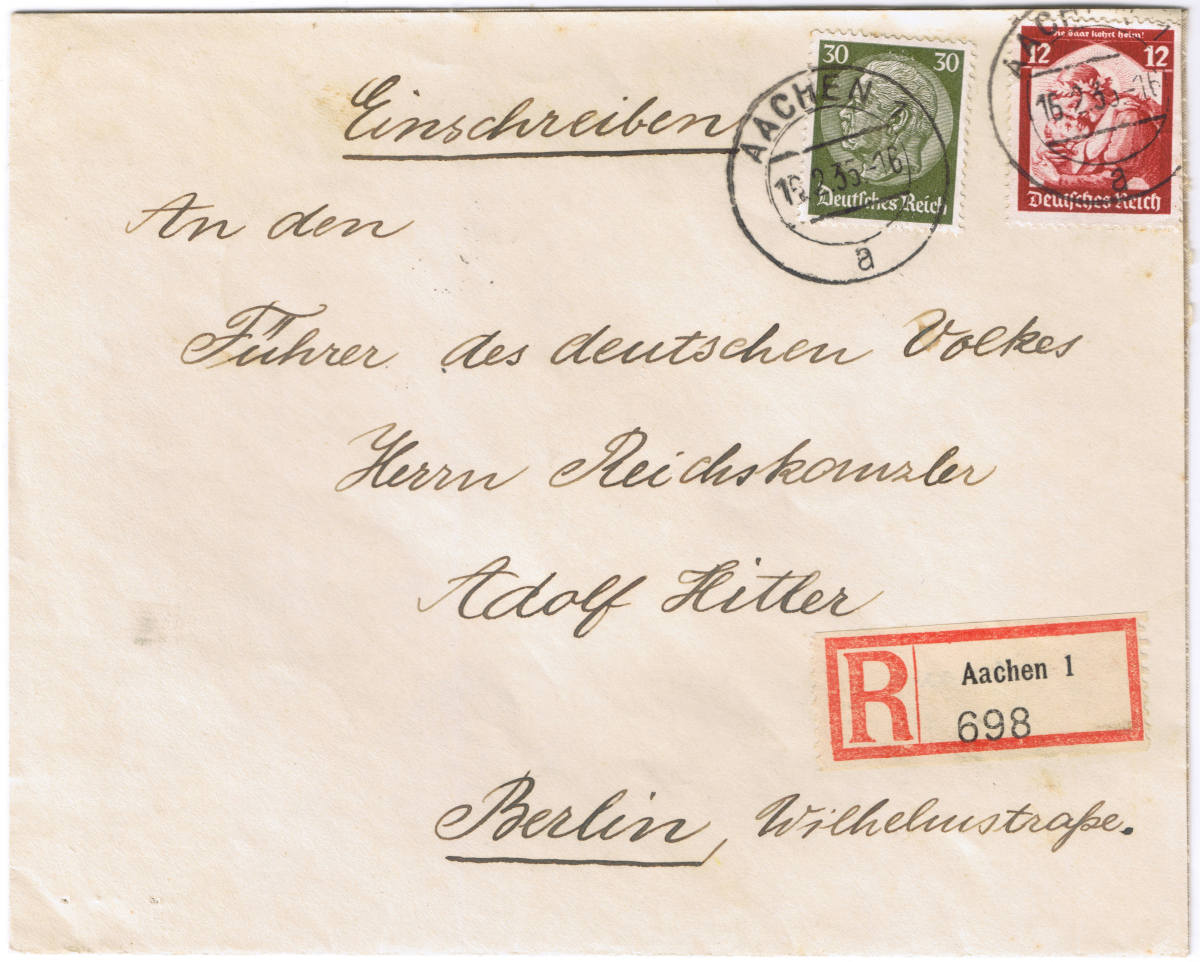 Einschreiben
30 30
Deutsches Reich
AACHEN 1
16.2.35-16
a
Die Saar kehrt heim!
12 12
Deutsches Reich
AACHEN 1
16.2.35-16
a
An den
Führer des deutschen Volkes
Herrn Reichskanzler
Adolf Hitler
R Aachen 1
698
Berlin, Wilhelmstraße.